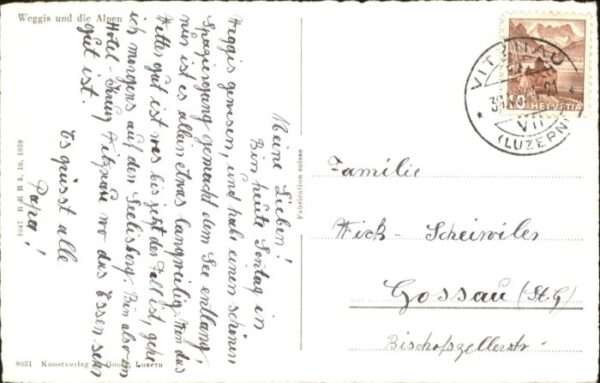 Weggis und die Alpen
Meine Lieben!
Bin heute Sontag in
Weggis gewesen, und hab einen schönen
Spaziergang gemacht dem See entlang,
nur ist es allein etwas langweilig. Wen das
Wetter gut ist was bis jetzt der Fall ist, gehe
ich morgens auf den Seelisberg. Bin also im
Hotel-Kreuz Vitznau wo das Essen sehr
gut ist.
Es grüsst alle
Papa!
Fabrication suisse
VITZNAU
VII
(LUZERN)
10 HELVETIA
Familie
Wick-Scheiwiler
Gossau (St.G)
Bischofszellerstr.
8031 Kunstverlag Luzern